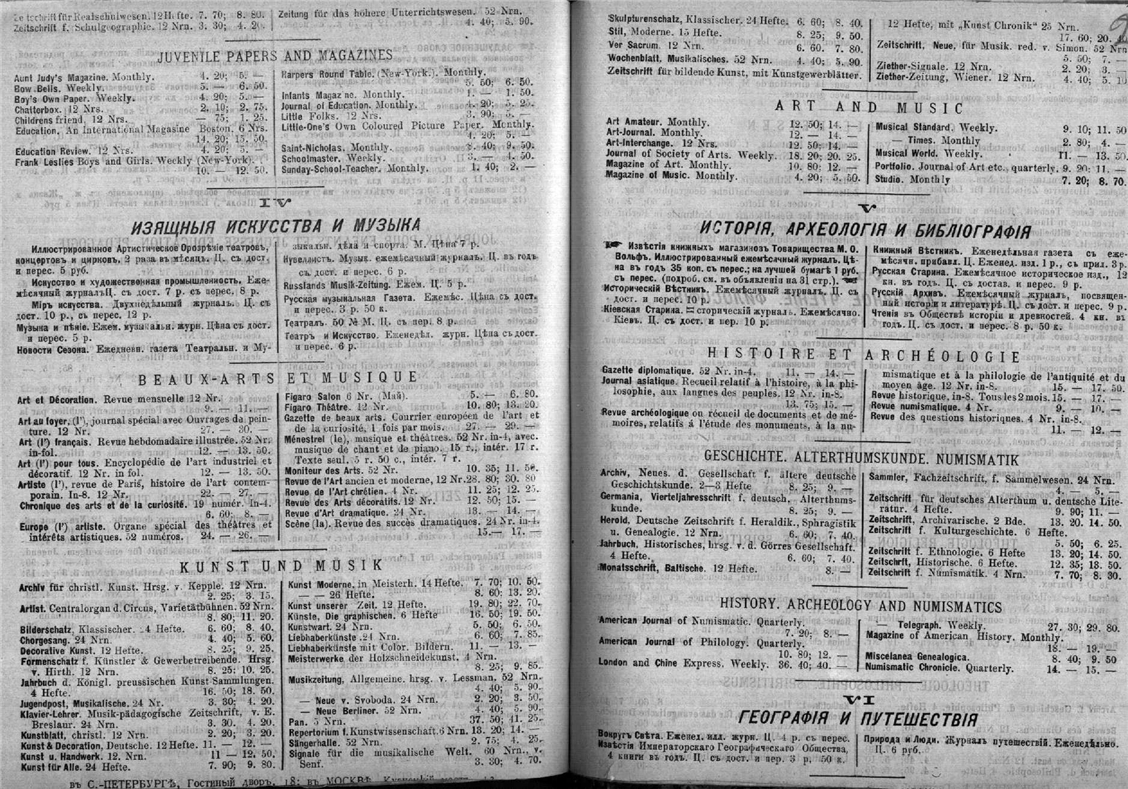 Zeitschrift für Realschulwesen. 12 Hefte. 7. 70; 8. 80.
Zeitschrift f. Schulgeographie. 12 Nrn. 3. 30; 4. 20.
Zeitung für das höhere Unterrichtswesen. 52 Nrn.
4. 40; 5. 90.
JUVENILE PAPERS AND MAGAZINES
Aunt Judy's Magazine. Monthly. 4. 20; 5. —
Bow Bells. Weekly. 5. — 6. 50.
Boy's Own Paper. Weekly. 4. 20; 5. —
Chatterbox. 12 Nrs. 2. 10; 2. 75.
Childrens friend, 12 Nrs. — 75; 1. 25.
Education, An International Magazine Boston. 6 Nrs.
14. 20; 15. 50.
Education Review. 12 Nrs. 4. 20; 5. —
Frank Leslies Boys and Girls. Weekly (New-York).
10. — 12. 50.
Harpers Round Table. (New-York.). Monthly.
5. 50; 6. 50.
Infants Magazine. Monthly. 1. — 1. 50.
Journal of Education. Monthly. 4. 20; 5. 25.
Little Folks. 12 Nrs. 3. 90; 5. —
Little-One's Own Coloured Picture Paper. Monthly.
4. 20; 5. —
Saint-Nicholas, Monthly. 8. 40; 9. 50.
Schoolmaster. Weekly. 3. — 4. 50.
Sunday-School-Teacher, Monthly. 1. 40; 2. —
IV
ИЗЯЩНЫЯ ИСКУССТВА И МУЗЫКА
Иллюстрированное Артистическое Обозрѣніе театровъ,
концертовъ и цирковъ. 2 раза въ мѣсяцъ. Ц. съ дост.
и перес. 5 руб.
Искусство и художественная промышленность. Еже-
мѣсячный журналъ. Ц. съ дост. 7 р. съ перес. 8 р.
Міръ искусства. Двухнедѣльный журналъ. Ц. съ
дост. 10 р., съ перес. 12 р.
Музыка и пѣніе. Ежем. музыкальн. журн. Цѣна съ дост.
и перес. 5 р.
Новости Сезона. Ежедневн. газета Театральн. и Му-
зыкальн. дѣла и спорта. М. Цѣна 7 р.
Нувелистъ. Музык. ежемѣсячн. журналъ. Ц. въ годъ
съ дост. и перес. 6 р.
Russlands Musik-Zeitung. Ежем. Ц. 5 р.
Русская музыкальная Газета. Ежемѣс. Цѣна съ дост.
и перес. 3 р. 50 к.
Театралъ. 50 № М. Ц. съ пер. 8 р.
Театръ и Искусство. Еженедѣл. журн. Цѣна съ дост.
и перес. 6 р.
BEAUX-ARTS ET MUSIQUE
Art et Décoration. Revue mensuelle 12 Nr.
9. — 11. —
Art au foyer. (l'), journal spécial avec Ouvrages de pein-
ture. 12 Nr. 27. — 30. —
Art (l') français. Revue hebdomadaire illustrée. 52 Nr.
in-fol. 12. — 13. 50.
Art (l') pour tous. Encyclopédie de l'art industriel et
décoratif. 12 Nr. in fol. 12. — 13. 50.
Artiste (l'), revue de Paris, histoire de l'art contem-
porain. In-8. 12 Nr. 22. — 27. —
Chronique des arts et de la curiosité. 19 numér. in-4.
6. 60; 8. —
Europe (l') artiste. Organe spécial des théâtres et
intérêts artistiques. 52 numéros. 24. — 26. —
Figaro Salon 6 Nr. (Май). 5. — 6. 80.
Figaro Théâtre. 12 Nr. 10. 80; 13. 20.
Gazette de beaux arts. Courrier européen de l'art et
de la curiosité, 1 fois par mois. 27. — 29. —
Ménestrel (le), musique et théâtres. 52 Nr. in-4, avec.
musique de chant et de piano. 15 r., intér. 17 r.
Texte seul. 5 r. 50 c., intér. 7 r.
Moniteur des Arts. 52 Nr. 10. 35; 11. 50.
Revue de l'Art ancien et moderne, 12 Nr. 28. 80; 30. 80
Revue de l'Art chrétien. 4 Nr. 11. 25; 12. 25.
Revue des Arts décoratifs. 12 Nr. 12. 50; 15. —
Revue d'Art dramatique. 24 Nr. 13. — 14. —
Scène (la). Revue des succès dramatiques. 24 Nr. in-4.
15.— 17. —
KUNST UND MUSIK
Archiv für christl. Kunst. Hrsg. v. Kepple. 12 Nrn.
2. 25; 3. 15.
Artist. Centralorgan d. Circus, Varietätbühnen. 52 Nrn.
8. 80; 11. 20.
Bilderschatz, Klassischer. 24 Hefte. 6. 60; 8. 40.
Chorgesang. 24 Nrn. 4. 40; 5. 60.
Decorative Kunst. 12 Hefte. 8. 25; 9. 25.
Formenschatz f. Künstler & Gewerbetreibende. Hrsg.
v. Hirth. 12 Nrn. 8. 25; 10. 25.
Jahrbuch d. Königl. preussischen Kunst-Sammlungen.
4 Hefte. 16. 50; 18. 50.
Jugendpost, Musikalische. 24 Nr. 3. 30; 4. 20.
Klavier-Lehrer. Musik-pädagogische Zeitschrift, v. E.
Breslaur. 24 Nrn. 3. 30; 4. 20.
Kunstblatt, christl. 12 Nrn. 2. 20; 3. 20.
Kunst & Decoration, Deutsche. 12 Hefte. 11. — 12. —
Kunst u. Handwerk. 12 Nrn. 11 — 12. 50.
Kunst für Alle. 24 Hefte. 7. 90; 9. 80.
Kunst Moderne, in Meisterh. 14 Hefte. 7. 70; 10. 50.
— — 26 Hefte. 8. 60; 13. 20.
Kunst unserer Zeit. 12 Hefte. 19. 80; 22. 70.
Künste, Die graphischen. 6 Hefte 16. 50; 19. 50.
Kunstwart. 24 Nrn. 5. 50; 6. 50.
Liebhaberkünste. 24 Nrn. 6. 60; 7. 85.
Liebhaberkünste mit Color. Bildern. 11. — 13. —
Meisterwerke der Holzschneidekunst, 4 Nrn.
8. 25; 9. 85.
Musikzeitung, Allgemeine. hrsg. v. Lessman, 52 Nrn.
4. 40; 5. 90.
— Neue v. Svoboda. 24 Nrn. 2. 20; 3. 50.
— Neue Berliner. 52 Nrn. 4. 40; 5. 90.
Pan. 5 Nrn. 37. 50; 41. 25.
Repertorium f. Kunstwissenschaft. 6 Nrn. 13. 20; 14. —
Sängerhalle. 52 Nrn. 2. 75; 4. 25.
Signale für die musikalische Welt. 60 Nrn., v.
Senf. 3. 30; 4. 70.
въ С.-ПЕТЕРБУРГѢ, Гостиный дворъ, 18; въ МОСКВѢ,
Skulpturenschatz, Klassischer. 24 Hefte. 6. 60; 8. 40.
Stil, Moderne. 15 Hefte. 8. 25; 9. 50.
Ver Sacrum. 12 Nrn. 6. 60. 7. 80.
Wochenblatt, Musikalisches. 52 Nrn. 4. 40; 5. 90.
Zeitschrift für bildende Kunst, mit Kunstgewerblätter.
12 Hefte, mit „Kunst Chronik" 25 Nrn.
17. 60; 20.
Zeitschrift, Neue, für Musik. red. v. Simon. 52 Nrn
5. 50; 7. —
Ziether-Signale. 12 Nrn. 2. 20; 3. —
Ziether-Zeitung, Wiener. 12 Nrn. 4. 40; 5. 10
ART AND MUSIC
Art Amateur. Monthly. 12. 50; 14. —
Art-Journal. Monthly. 12. — 14. —
Art-Interchange. 12 Nrs. 12. 50; 14. —
Journal of Society of Arts. Weekly. 18. 20; 20. 25.
Magazine of Art. Monthly. 10. 80; 12. —
Magazine of Music. Monthly. 4. 20; 5. 50.
Musical Standard. Weekly. 9. 10; 11. 50
— Times. Monthly 2. 80; 4. —
Musical World. Weekly. 11. — 13. 50
Portfolio. Journal of Art etc., quarterly. 9. 20; 11. —
Studio. Monthly 7. 20; 8. 70.
V
ИСТОРІЯ, АРХЕОЛОГІЯ И БИБЛІОГРАФІЯ
Извѣстія книжныхъ магазиновъ Товарищества М. О.
Вольфъ. Иллюстрированный ежемѣсячный журналъ. Цѣ-
на въ годъ 35 коп. съ перес.; на лучшей бумагѣ 1 руб.
съ перес. (подроб. см. въ объявленіи на 31 стр.).
Историческій Вѣстникъ. Ежемѣсячный журналъ. Ц. съ
дост. и перес. 10 р.
Кіевская Старина. Историческій журналъ. Ежемѣсячно.
Кіевъ. Ц. съ дост. и пер. 10 р.
Книжный Вѣстникъ. Еженедѣльная газета съ еже-
мѣсячн. прибавл. Ц. Еженед. изд. 1 р., съ прил. 3 р.
Русская Старина. Ежемѣсячное историческое изд., 12
кн. въ годъ. Ц. съ достав. и перес. 9 р.
Русскій Архивъ. Ежемѣсячный журналъ, посвящен-
ный исторіи и литературѣ. Ц. съ дост. и перес. 9 р.
Чтенія въ Обществѣ исторіи и древностей. 4 кн. въ
годъ. Ц. съ дост. и перес. 8 р. 50 к.
HISTOIRE ET ARCHÉOLOGIE
Gazette diplomatique. 52 Nr. in-4. 11. — 14. —
Journal asiatique. Recueil relatif à l'histoire, à la phi-
losophie, aux langues des peuples. 12 Nr. in-8.
13. 75; 15. —
Revue archéologique ou récueil de documents et de mé-
moires, relatifs à l'étude des monuments, à la nu-
mismatique et à la philologie de l'antiquité et du
moyen âge. 12 Nr. in-8. 15. — 17. 50.
Revue historique, in-8. Tous les 2 mois. 15. — 17. —
Revue numismatique. 4 Nr. 9. — 10. —
Revue des questions historiques. 4 Nr. in-8.
11. — 12. —
GESCHICHTE. ALTERTHUMSKUNDE. NUMISMATIK
Archiv, Neues. d. Gesellschaft f. ältere deutsche
Geschichtskunde. 2—3 Hefte 8. 25; 9. —
Germania, Vierteljahresschrift f. deutsch. Alterthums-
kunde. 8. 25; 9. —
Herold, Deutsche Zeitschrift f. Heraldik., Sphragistik
u. Genealogie. 12 Nrn. 6. 60; 7. 40.
Jahrbuch, Historisches, hrsg. v. d. Görres Gesellschaft.
4 Hefte. 6. 60; 7. 40.
Monatsschrift, Baltische. 12 Hefte. 8. —
Sammler, Fachzeitschrift, f. Sammelwesen. 24 Nrn.
4. — 5. —
Zeitschrift für deutsches Alterthum u. deutsche Lite-
ratur. 4 Hefte. 9. 90; 11. —
Zeitschrift, Archivarische. 2 Bde. 13. 20. 14. 50.
Zeitschrift f. Kulturgeschichte. 6 Hefte.
5. 50; 6. 25.
Zeitschrift f. Ethnologie. 6 Hefte 13. 20; 14. 50.
Zeitschrft, Historische. 6 Hefte. 12. 35; 18. 50.
Zeitschrift f. Numismatik. 4 Nrn. 7. 70; 8. 30.
HISTORY. ARCHEOLOGY AND NUMISMATICS
American Journal of Numismatic. Quarterly.
7. 20; 8. —
American Journal of Philology. Quarterly.
10. 80; 12. —
London and Chine Express. Weekly. 36. 40; 40. —
— Telegraph. Weekly. 27. 30; 29. 80.
Magazine of American History. Monthly.
18. — 19. —
Miscelanea Genealogica. 8. 40; 9. 50
Numismatic Chronicle. Quarterly. 14. — 15. —
VI
ГЕОГРАФІЯ И ПУТЕШЕСТВІЯ
Вокругъ Свѣта. Еженед. илл. журн. Ц. 4 р. съ перес.
Извѣстія Императорскаго Географическаго Общества,
4 книги въ годъ. Ц. съ дост. и пер. 3 р. 50 к.
Природа и Люди. Журналъ путешествій. Еженедѣльно.
Ц. 6 руб.